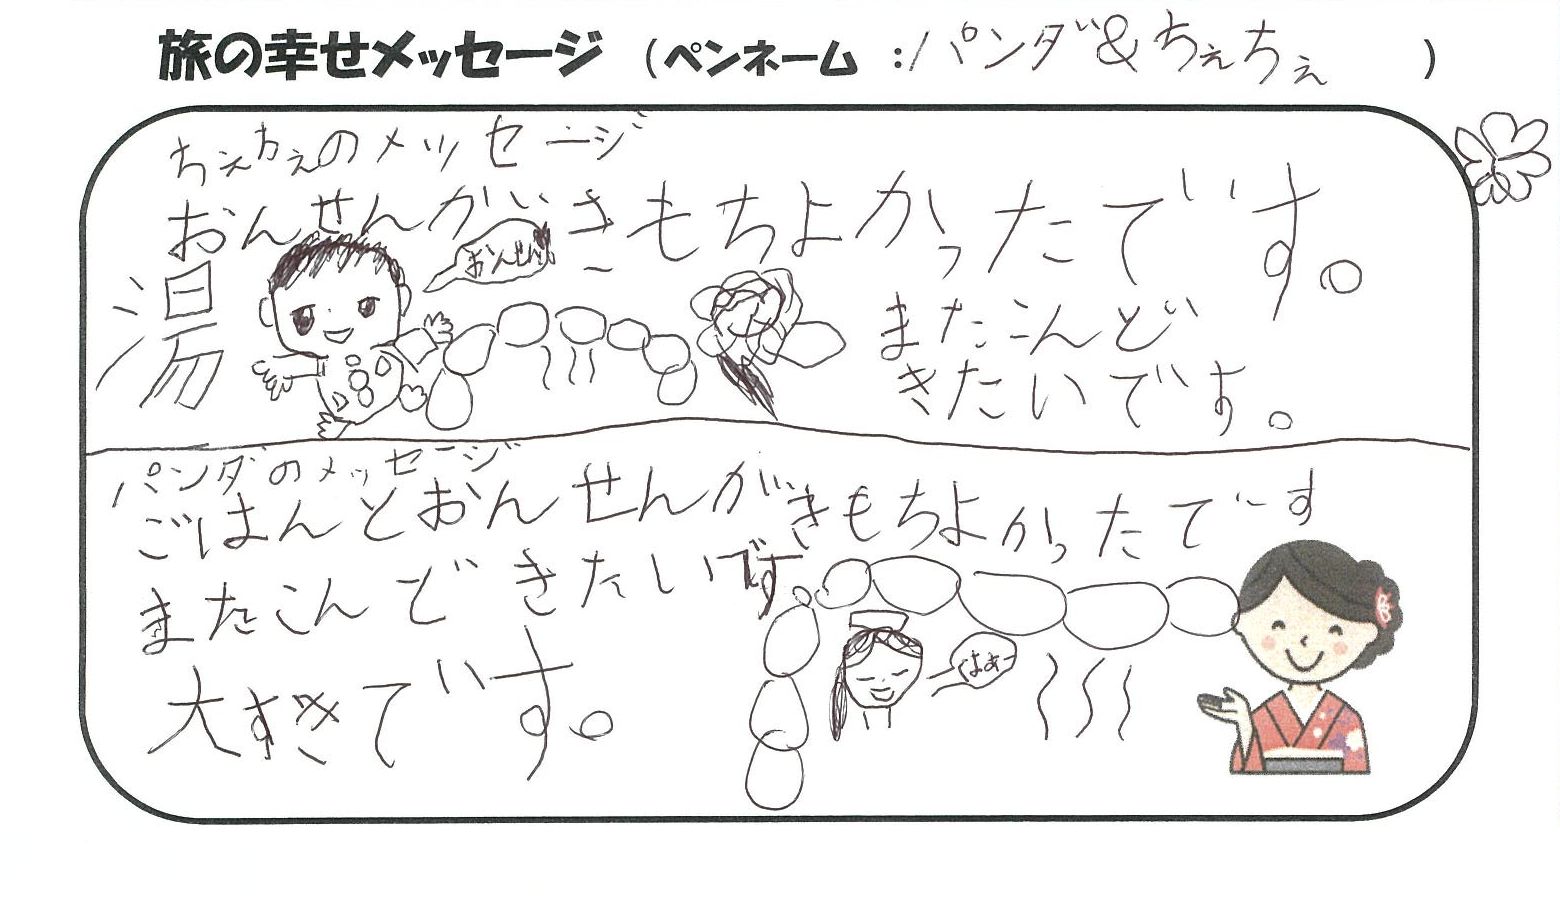 旅の幸せメッセージ (ペンネーム :パンダ&ちぇちぇ )
ちぇちぇのメッセージ
おんせんがきもちよかったです。
おんせん
湯
またこんど
きたいです。
パンダのメッセージ
ごはんとおんせんがきもちよかったでーす
またこんどきたいです。
はぁー
大すきです。